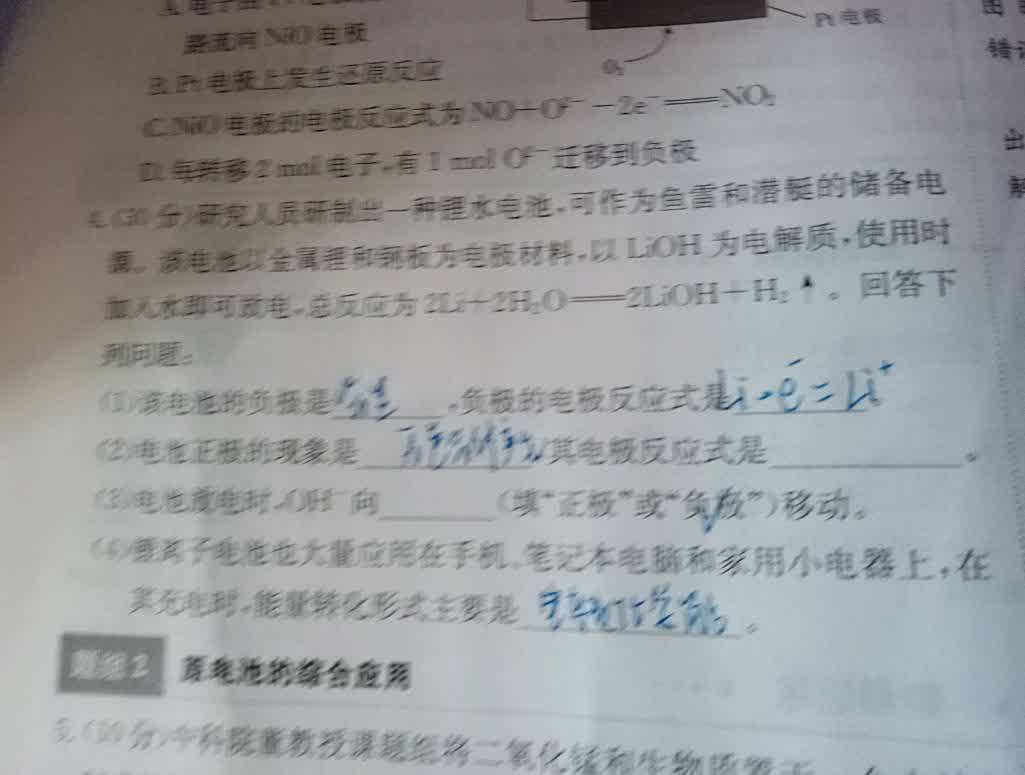 路流向 NiO 电极
Pt 电极
B. Pt 电极上发生还原反应
O₂
C. NiO 电极的电极反应式为 NO+O²⁻−2e⁻══NO₂
D. 每转移 2 mol 电子,有 1 mol O²⁻ 迁移到负极
4.(20 分)研究人员研制出一种锂水电池,可作为鱼雷和潜艇的储备电
源。该电池以金属锂和钢板为电极材料,以 LiOH 为电解质,使用时
加入水即可放电,总反应为 2Li+2H₂O══2LiOH+H₂↑。回答下
列问题:
(1)该电池的负极是____,负极的电极反应式是Li-e⁻=Li⁺
(2)电池正极的现象是____其电极反应式是____。
(3)电池放电时,OH⁻向____(填“正极”或“负极”)移动。
(4)锂离子电池也大量应用在手机、笔记本电脑和家用小电器上,在
其充电时,能量转化形式主要是____。
题组2 原电池的综合应用
5.(20 分)中科院董教授课题组将二氧化锰和生物质
错
出